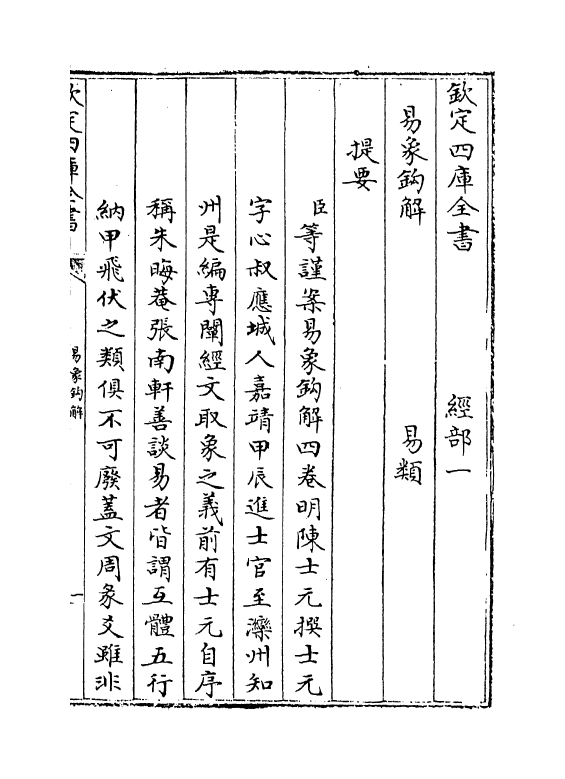 欽定四庫全書　經部一
易象鈎解　易類
提要
臣等謹案易象鈎解四卷明陳士元撰士元
字心叔應城人嘉靖甲辰進士官至灤州知
州是編專闡經文取象之義前有士元自序
稱朱晦菴張南軒善談易者皆謂互體五行
納甲飛伏之類俱不可廢蓋文周象爻雖非
欽定四庫全書
易象鈎解
一